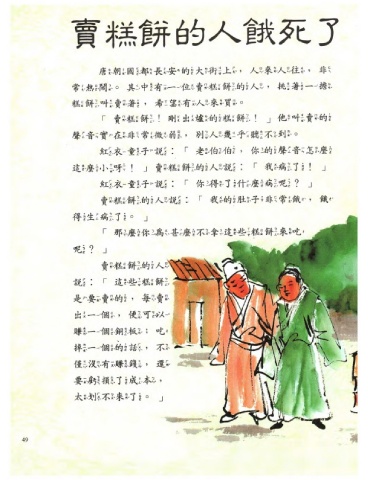 賣糕餅的人餓死了
唐朝國都長安的大街上，人來人往，非
常熱鬧。其中有一位賣糕餅的人，挑著一擔
糕餅叫賣著，希望有人來買。
「賣糕餅！剛出爐的糕餅！」他叫賣的
聲音實在非常微弱，別人幾乎聽不到。
紅衣童子說：「老伯伯，你的聲音怎麼
這麼小呀！」賣糕餅的人說：「我病了！」
紅衣童子說：「你得了什麼病呢？」
賣糕餅的人說：「我的肚子非常餓，餓
得生病了。」
「那麼你為甚麼不拿這些糕餅來吃
呢？」
賣糕餅的人
說：「這些糕餅
是要賣的，每賣
出一個，便可以
賺一個銅板；吃
掉一個的話，不
僅沒有賺錢，還
要虧損了成本，
太划不來了。」
49